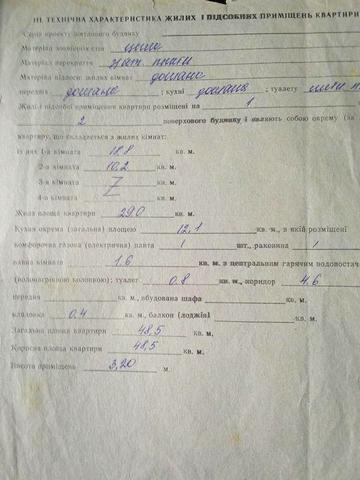 III. ТЕХНІЧНА ХАРАКТЕРИСТИКА ЖИЛИХ І ПІДСОБНИХ ПРИМІЩЕНЬ КВАРТИРИ
Серія проекту житлового будинку
Матеріал зовнішніх стін цегла
Матеріал перекриття зал. плити
Матеріал підлоги: жилих кімнат дощана
передпіч дощана ; кухні дощана ; туалету
Жилі і підсобні приміщення квартири розміщені на 1
2 поверхового будинку і являють собою окрему (за
квартиру, що складається з жилих кімнат:
із них 1-а кімната 18.8 кв. м.
2-а кімната 10,2 кв. м.
3-я кімната Z кв. м.
4-а кімната кв. м.
Жила площа квартири 29.0 кв. м.
Кухня окрема (загальна) площею 12,1 кв. м., в якій розміщені
комфорочна газова (електрична) плита 1 шт., раковина 1
ванна кімната 1.6 кв. м. з центральним гарячим водопостач
(водомагрійною колонкою); туалет 0.8 кв. м., коридор 4.6
передня кв. м., вбудована шафа кв. м.
кладовка 0.4 кв. м., балкон (лоджія) кв. м.
Загальна площа квартири 48,5 кв. м.
Корисна площа квартири 48,5 кв. м.
Висота приміщень 3,20 м.